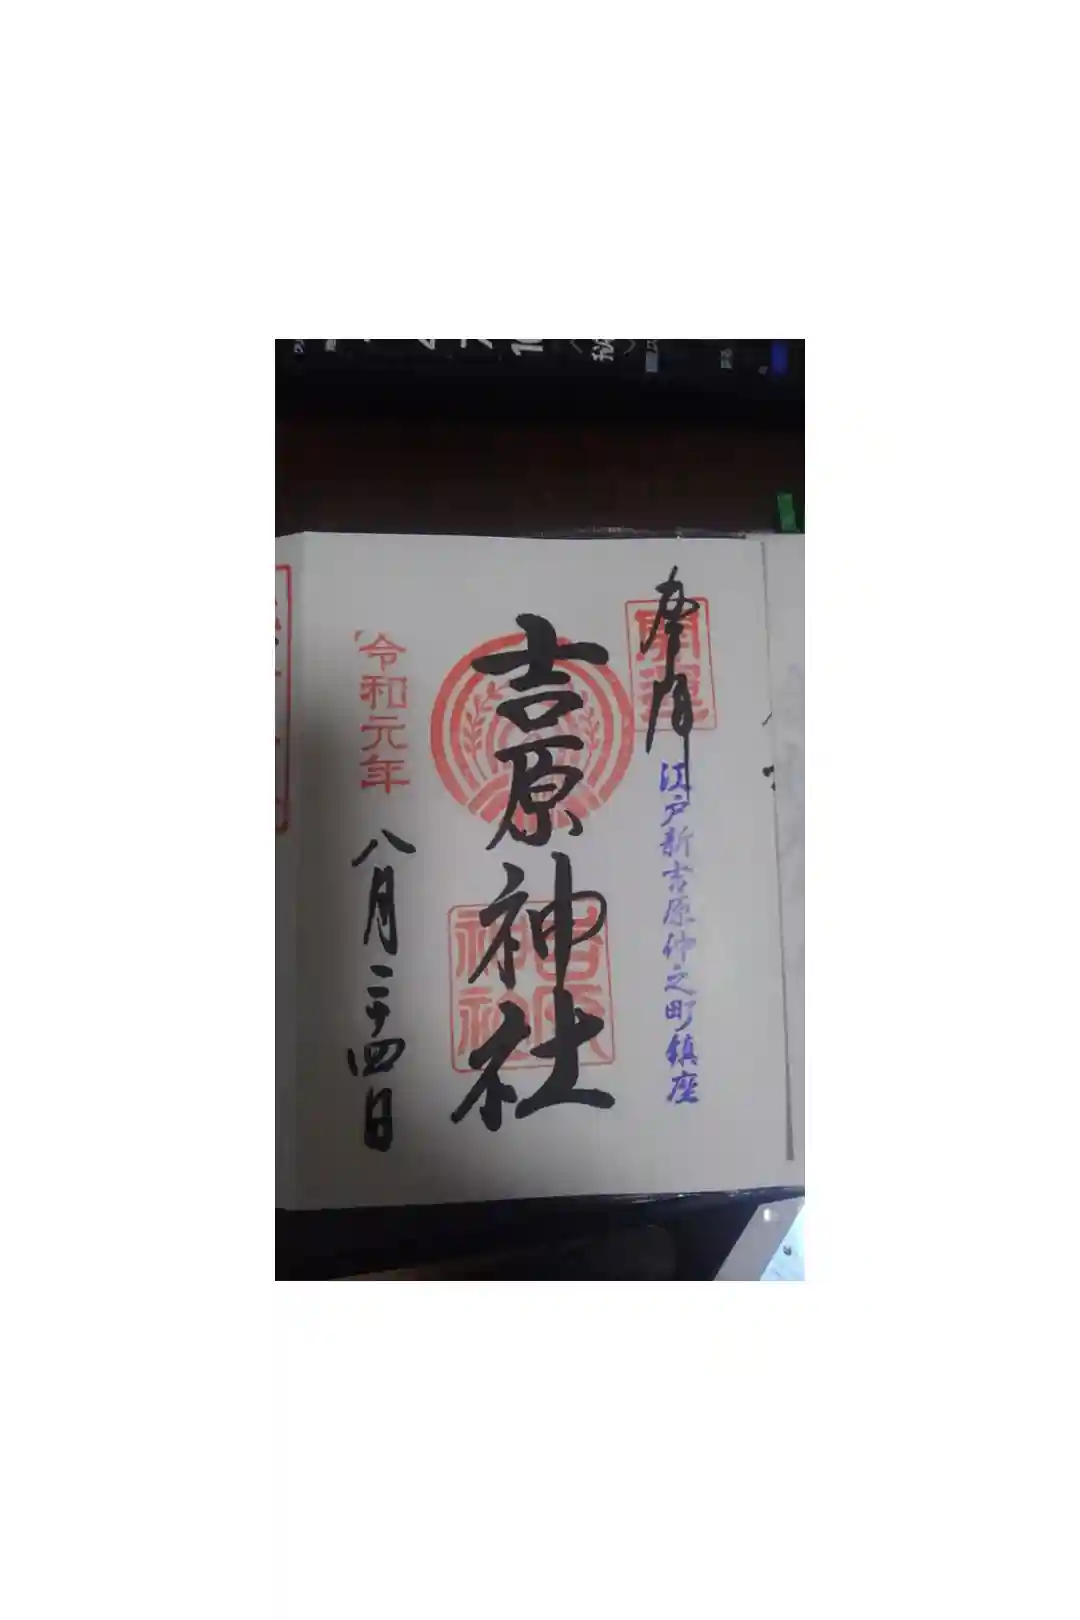 奉拝
開運
江戸新吉原仲之町鎮座
吉原神社
吉原
神社
令和元年
八月二十四日